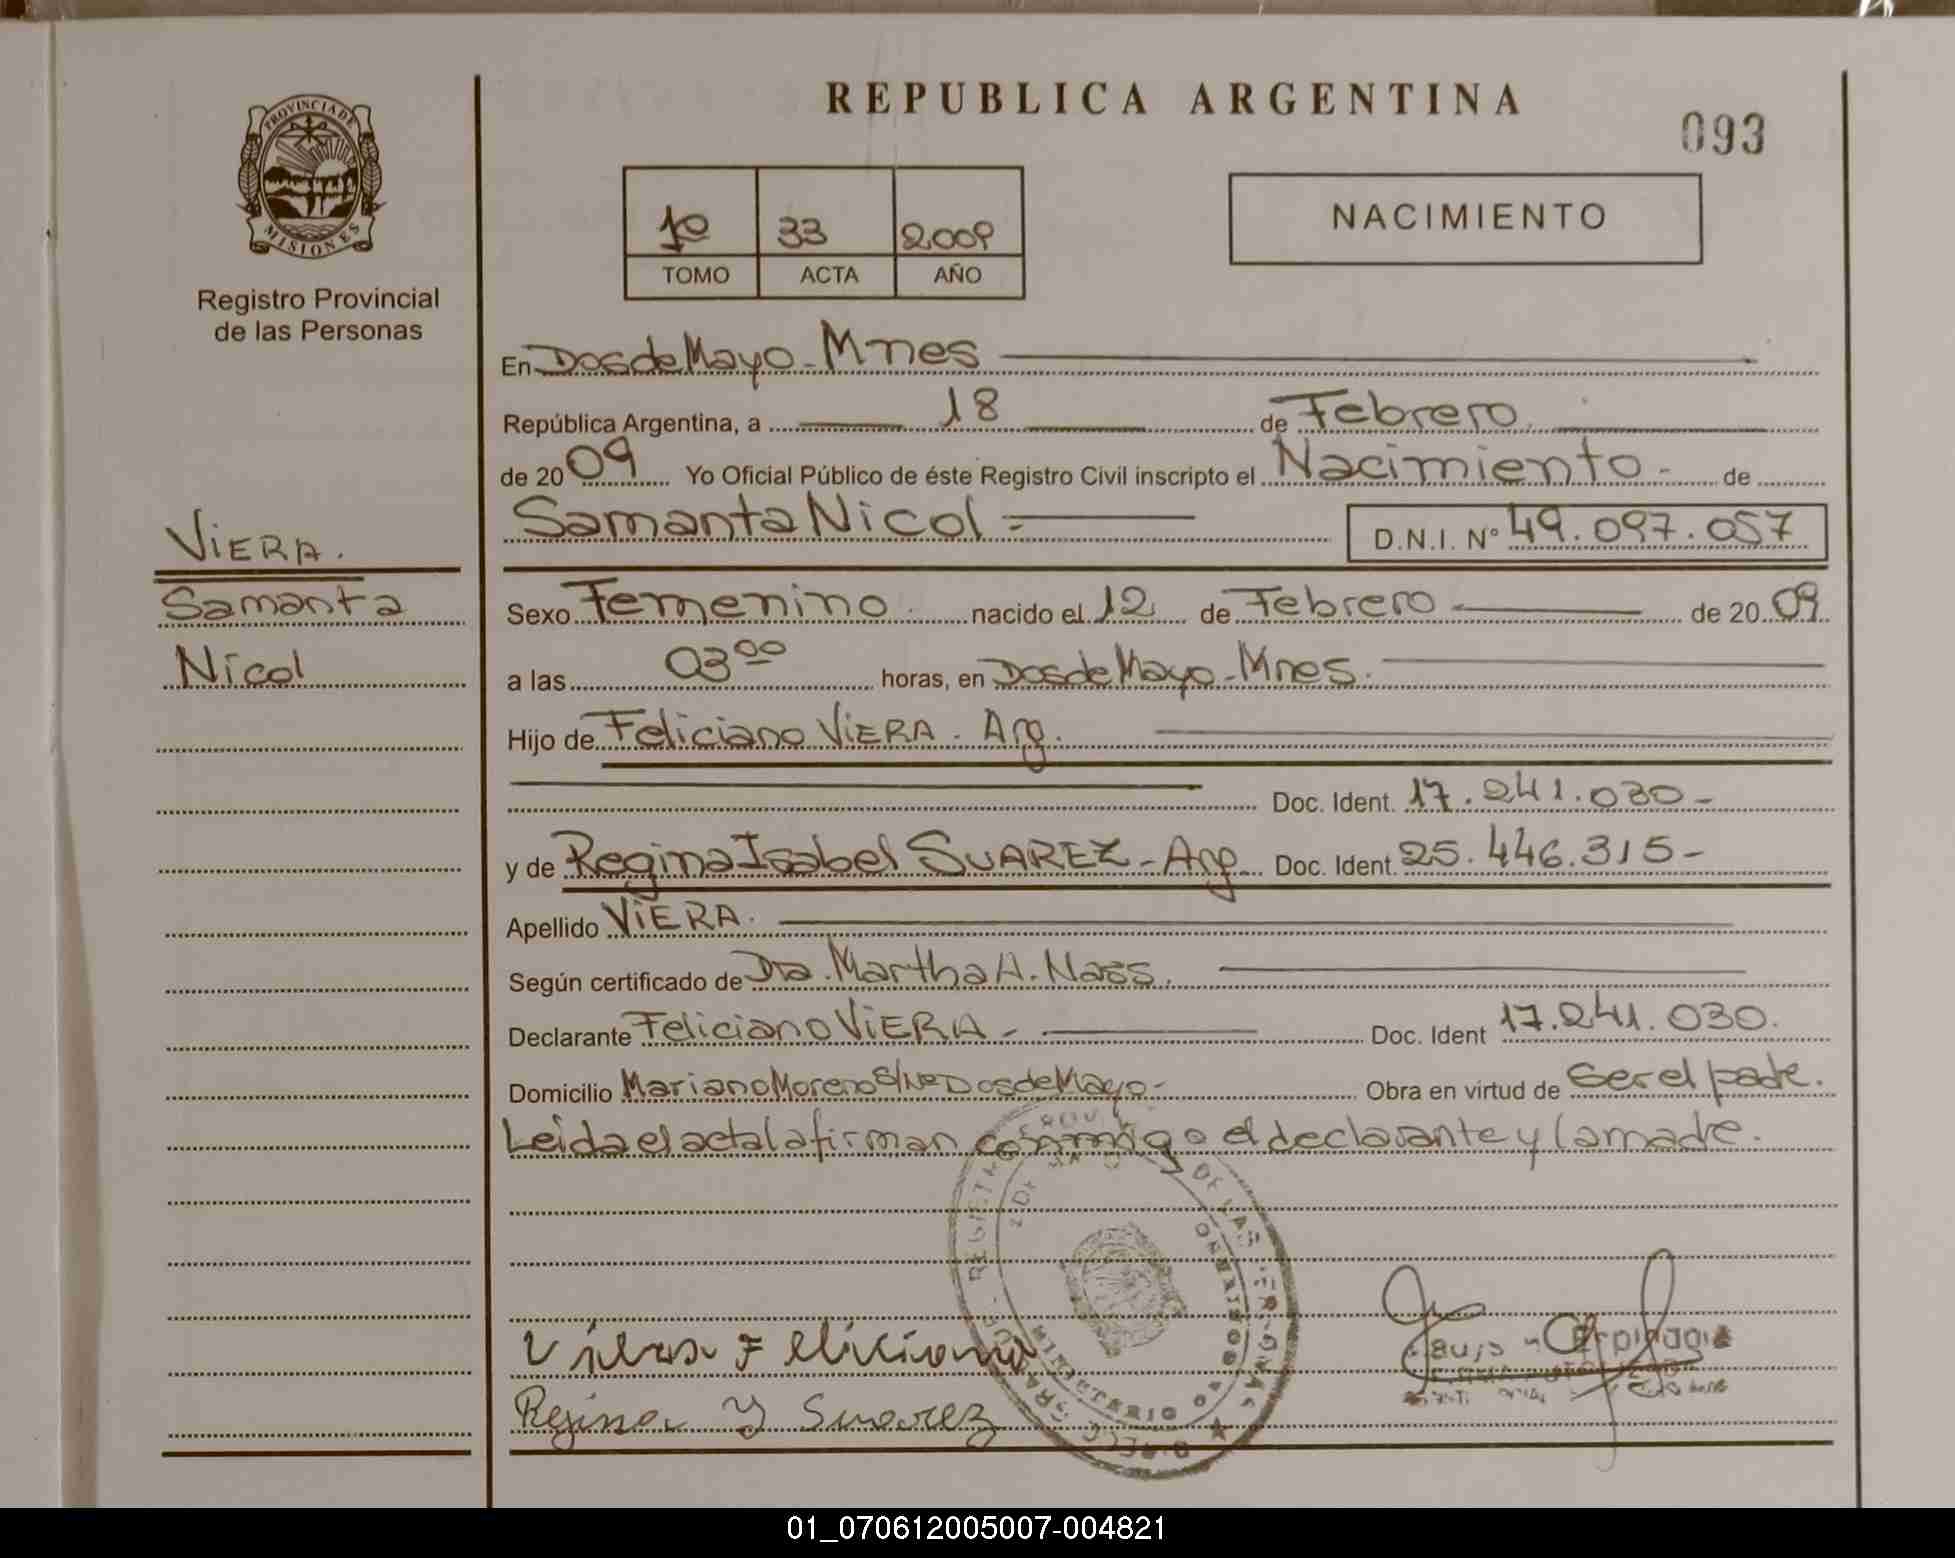 REPUBLICA ARGENTINA
093
PROVINCIA DE
MISIONES
Registro Provincial
de las Personas
1º 33 2009
TOMO ACTA AÑO
NACIMIENTO
En Dos de Mayo - Mnes
República Argentina, a 18 de Febrero
de 2009 Yo Oficial Público de éste Registro Civil inscripto el Nacimiento - de
Samanta Nicol =
D.N.I. Nº 49.097.057
VIERA.
Samanta
Nicol
Sexo Femenino nacido el 12 de Febrero de 2009
a las 03 00 horas, en Dos de Mayo - Mnes.
Hijo de Feliciano VIERA - Arg.
Doc. Ident. 17.241.030 -
y de Regina Isabel SUAREZ - Arg Doc. Ident. 25.446.315 -
Apellido VIERA.
Según certificado de Dra. Martha A. Nass.
Declarante Feliciano VIERA - Doc. Ident 17.241.030.
Domicilio Mariano Moreno S/Nº Dos de Mayo - Obra en virtud de Ser el padre.
Leida el acta la firman conmigo el declarante y la madre.
Viera Feliciano
Regina Y Suarez
01_070612005007-004821